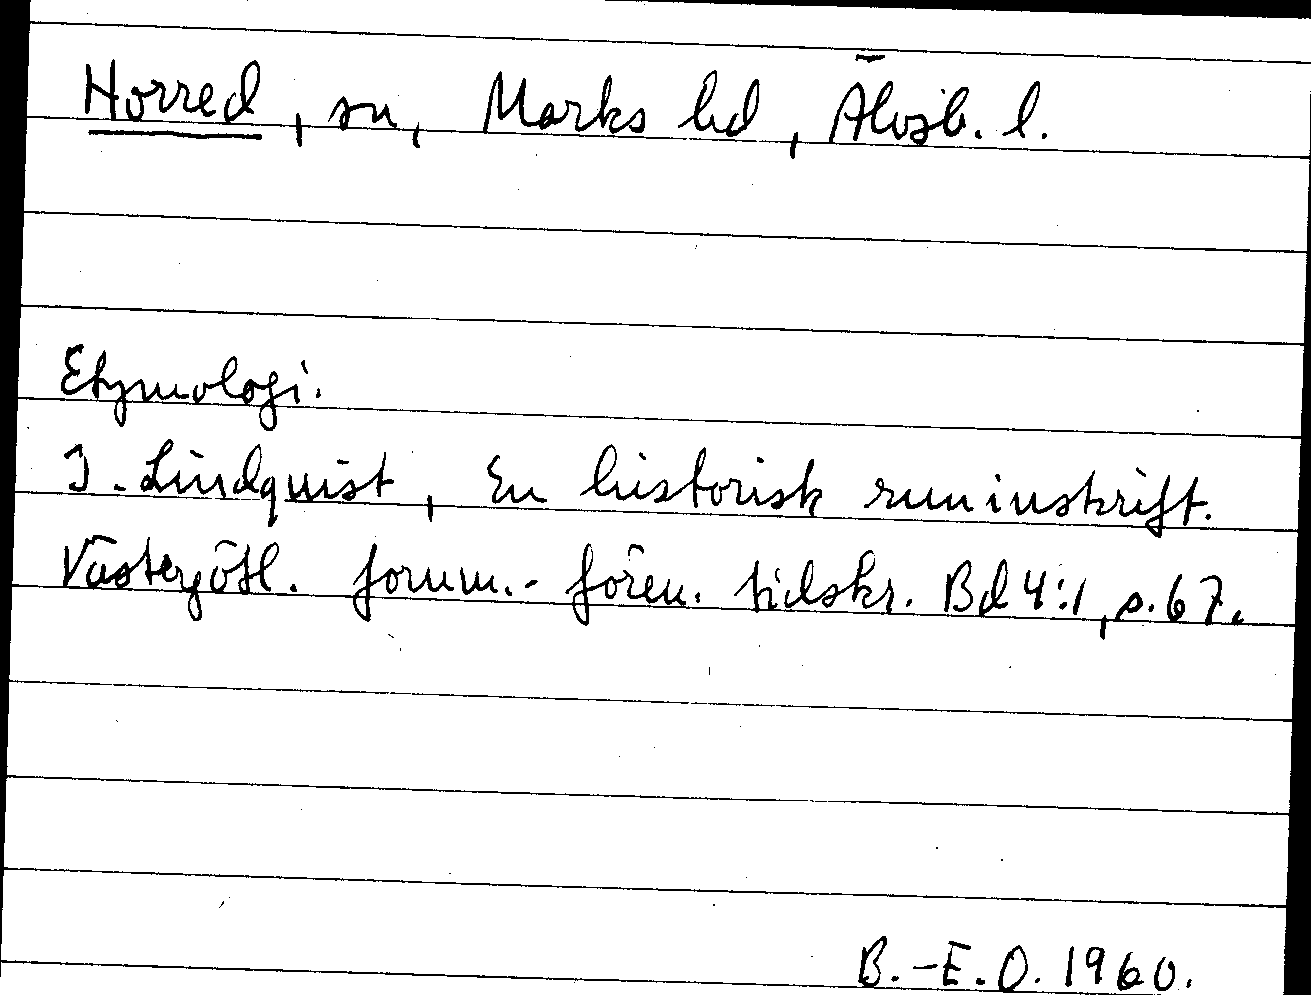 Horred, sn, Marks hd, Älvsb. l.
Etymologi.
I. Lindquist, En historisk runinskrift.
Västergötl. fornm.-fören. tidskr. Bd 4:1, s. 67.
B.-E.O. 1960.